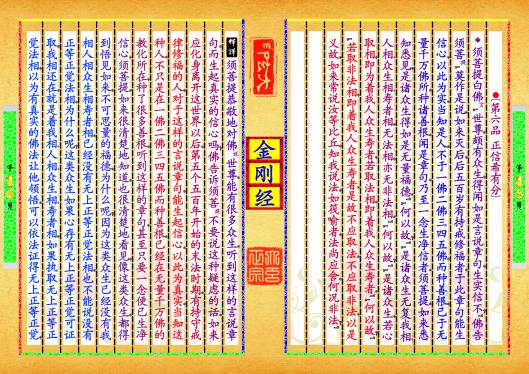 【第六品 正信希有分】
须菩提白佛。世尊颇有众生得闻如是言说章句生实信不。佛告
须菩提。莫作是说如来灭后后五百岁有持戒修福者于此章句能生
信心以此为实当知是人不于一佛二佛三四五佛而种善根已于无
量千万佛所种诸善根闻是章句乃至一念生净信者须菩提如来悉
知悉见是诸众生得如是无量福德。何以故。是诸众生无复我相
人相众生相寿者相无法相亦无非法相。何以故。是诸众生若心
取相即为着我人众生寿者若取法相即着我人众生寿者。何以故。
若取非法相即着我人众生寿者是故不应取法不应取非法以是
义故如来常说汝等比丘知我说法如筏喻者法尚应舍何况非法。
金刚经
须菩提恭敬地对佛。世尊能有很多众生听到这样的言说章
句而生起实信的心吗佛告诉须菩提。不要说这种疑虑的话如来
应化身离开这世界以后第五个五百年开始的末法时期有持守戒
律修福的人对于这样的言说章句能生起信心以此为真实当知这
种人不只是在一佛二佛三四五佛而种善根已经在无量千万佛的
教化所在种了很多善根听到这样的章句甚至只要一念便已生净
信心须菩提如来很清楚地知道也很清楚地看见像这类众生都得
到悟见如来不可思量的福德为什么呢因为这类众生已经没有我
相人相众生相寿者相已经没有无上正等正觉法相也不能说没有
正等正觉法相为什么呢这类众生如果心存有无上正等正觉可证
取我相还在就是着我相人相众生相寿者相如果执取无上正等正
觉法相以为有真实的佛法让他领悟可以依法证得无上正等正觉